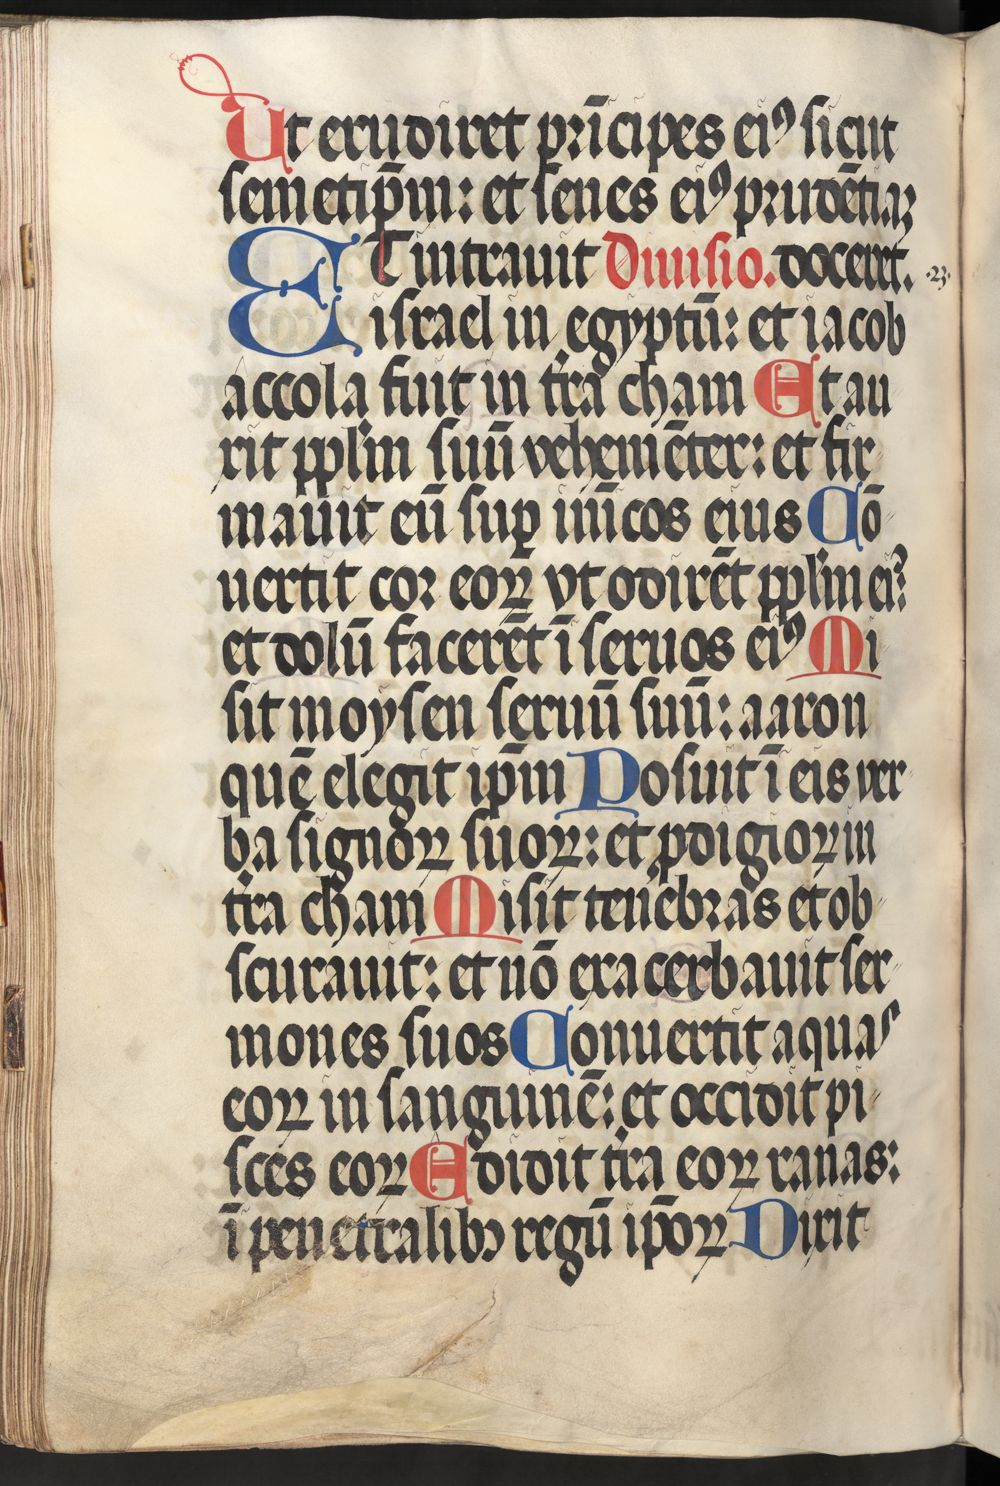 Ut erudiret prīcipes eiꝰ sicut
semetip̄m: et senes eiꝰ prudētiaꝝ
ET intrauit Diuisio. doceret. ·23·
israel in egyptū: et iacob
accola fuit in tr̄a cham Et au
xit pplm̄ suū vehemēter: et fir
mauit eū suꝑ inīcos eius Cō
uertit cor eoꝝ vt odirēt pplm̄ eiꝰ:
et dolū facerēt ī seruos eiꝰ Mi
sit moysen seruū suū: aaron
quē elegit ip̄m Posuit ī eis ver
ba signoꝝ suoꝝ: et ꝓdigioꝝ in
tr̄a cham Misit tenebras et ob
scurauit: et nō exacerbauit ser
mones suos Conuertit aquas
eoꝝ in sanguinē: et occidit pi
sces eoꝝ Edidit tr̄a eoꝝ ranas:
ī penetralibꝫ regū ip̄oꝝ Dixit